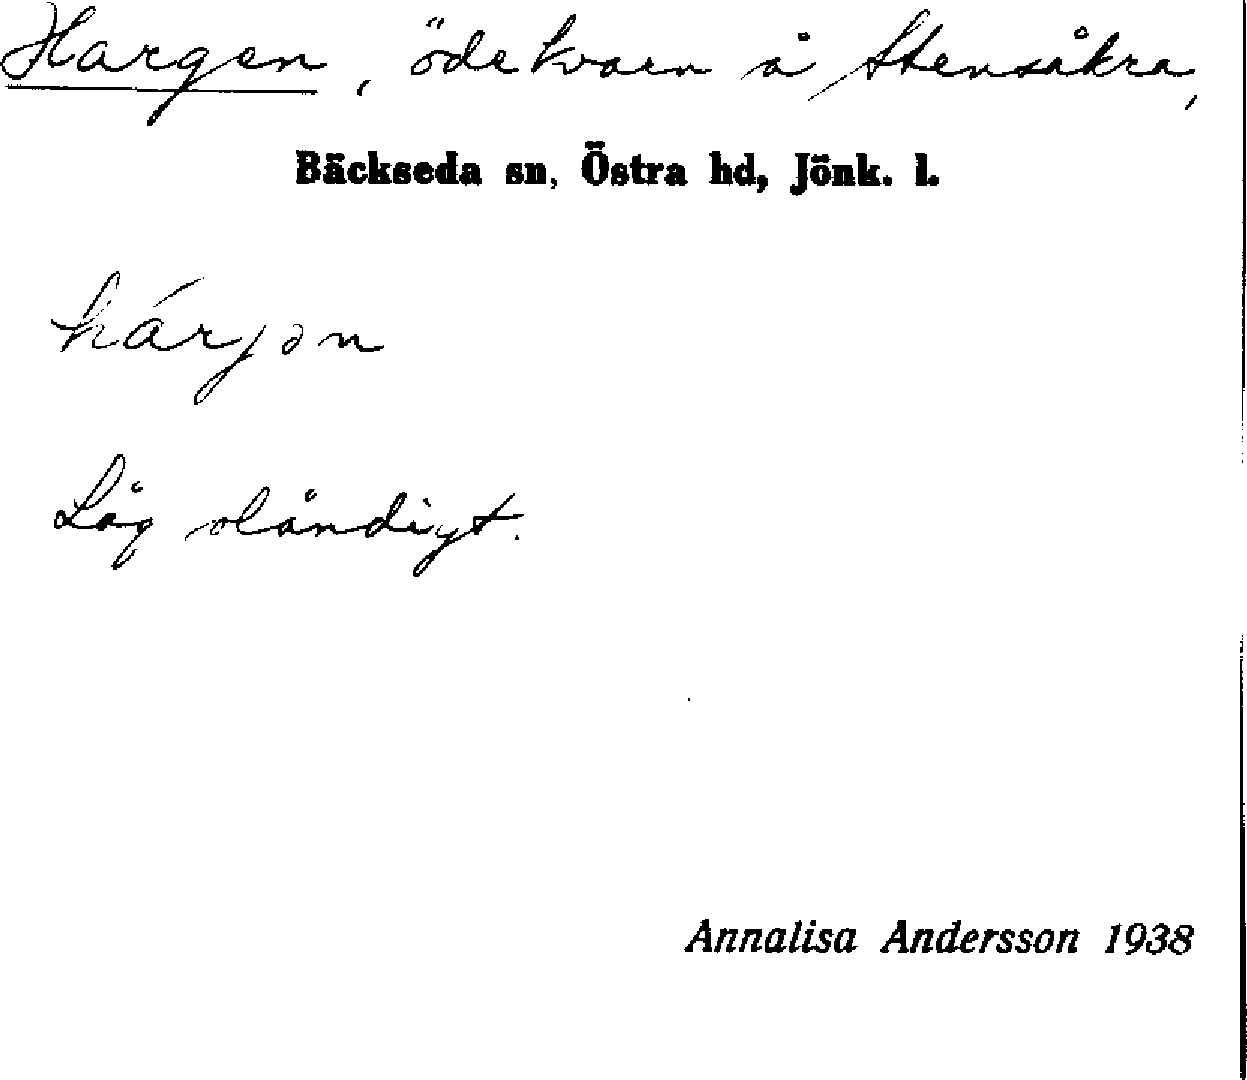 Hargen, öde kvarn å Stensåkra,
Bäckseda sn, Östra hd, Jönk. l.
hárjən
Låg oländigt.
Annalisa Andersson 1938